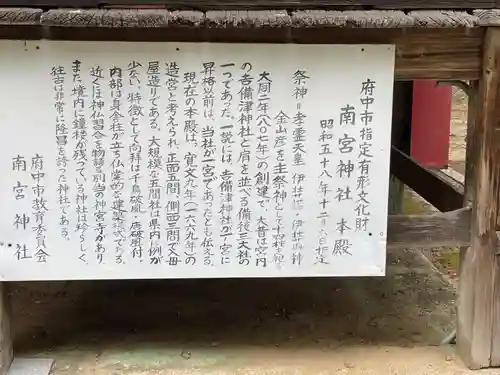 府中市指定有形文化財
南宮神社 本殿
昭和五十八年十二月八日指定
祭神=孝霊天皇 伊牡諾、伊牡册神
金山彦を主祭神として十四柱を祀る
大同二年(八〇七年)の創建で、大昔は宮内
の吉備津神社と肩を並べる備後三大社の
一つであった。一説には、吉備津神社が一宮に
昇格以前は、当社が一宮であったとも伝える。
現在の本殿は、寛文九年(一六六九年)の
造営と考えられ、正面五間、側面三間で入母
屋造りである。大規模な五間社は県内に例が
少ない。特徴として向拝に千鳥破風・唐破風付。
内部は身舎柱が立ち仏堂的な建築様式である。
近くには神仏習合を物語る別当の神宮寺があり
また、境内に鐘楼が残っている神社は珍らしく、
往古は非常に隆昌を誇った神社である。
府中市教育委員会
南宮神社